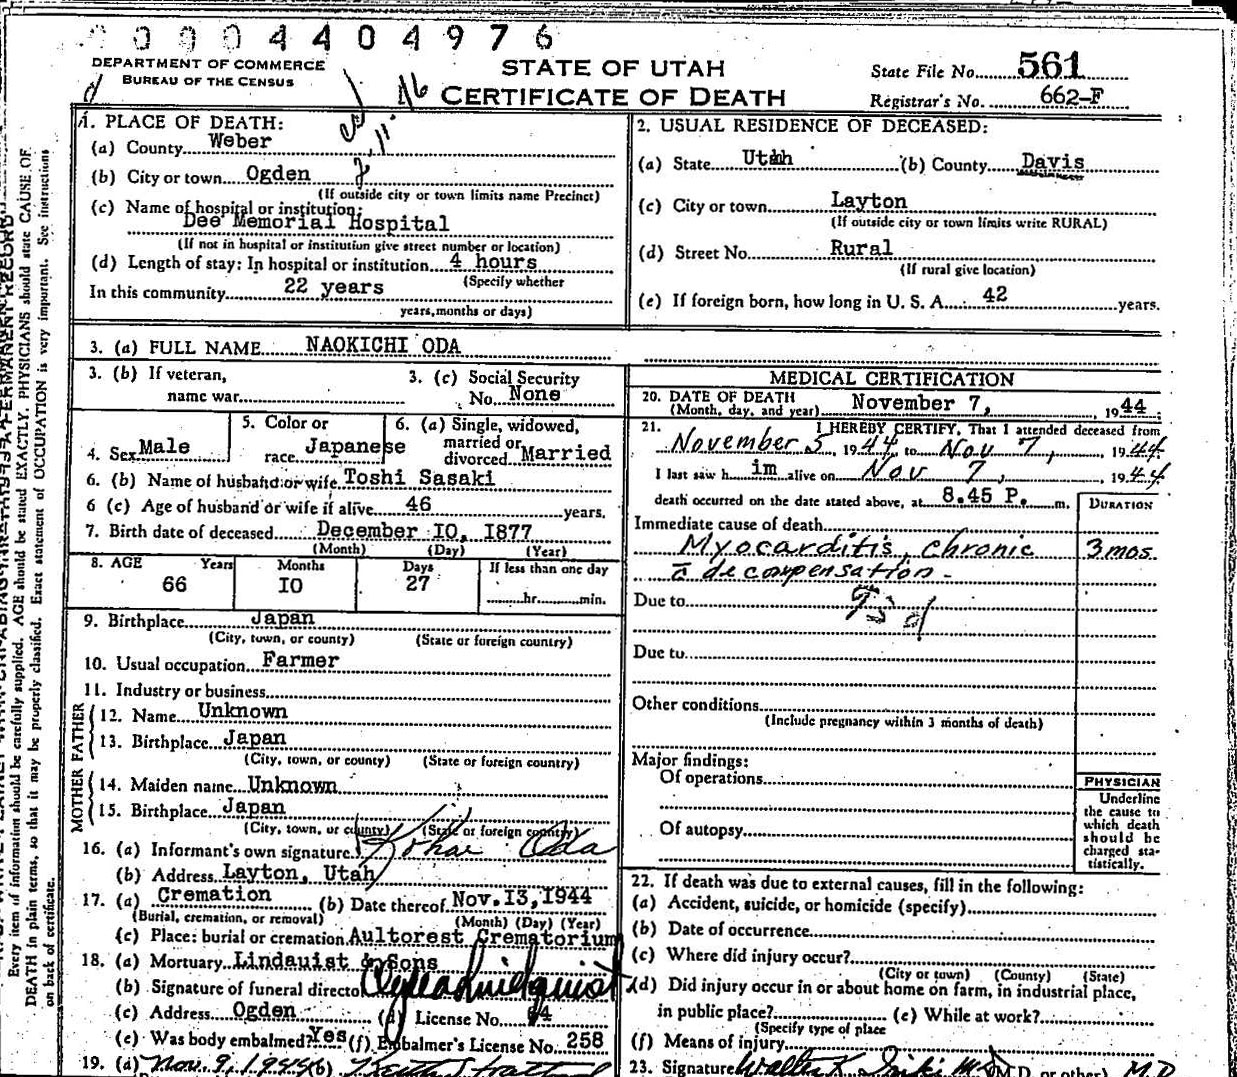 0000440 4976
DEPARTMENT OF COMMERCE
BUREAU OF THE CENSUS
STATE OF UTAH
CERTIFICATE OF DEATH
State File No. 561
Registrar's No. 662-F
1. PLACE OF DEATH:
(a) County Weber
(b) City or town Ogden
(If outside city or town limits name Precinct)
(c) Name of hospital or institution:
Dee Memorial Hospital
(If not in hospital or institution give street number or location)
(d) Length of stay: In hospital or institution 4 hours
(Specify whether
In this community 22 years
years, months or days)
2. USUAL RESIDENCE OF DECEASED:
(a) State Utah (b) County Davis
(c) City or town Layton
(If outside city or town limits write RURAL)
(d) Street No. Rural
(If rural give location)
(e) If foreign born, how long in U. S. A. 42 years.
3. (a) FULL NAME NAOKICHI ODA
3. (b) If veteran,
name war
3. (c) Social Security
No. None
4. Sex Male
5. Color or
race Japanese
6. (a) Single, widowed,
married or
divorced Married
6. (b) Name of husband or wife Toshi Sasaki
6 (c) Age of husband or wife if alive 46 years.
7. Birth date of deceased December 10, 1877
(Month) (Day) (Year)
8. AGE Years Months Days If less than one day
66 10 27 hr. min.
9. Birthplace Japan
(City, town, or county) (State or foreign country)
10. Usual occupation Farmer
11. Industry or business
FATHER
12. Name Unknown
13. Birthplace Japan
(City, town, or county) (State or foreign country)
MOTHER
14. Maiden name Unknown
15. Birthplace Japan
(City, town, or county) (State or foreign country)
16. (a) Informant's own signature Oda
(b) Address Layton, Utah
17. (a) Cremation (b) Date thereof Nov. 13, 1944
(Burial, cremation, or removal) (Month) (Day) (Year)
(c) Place: burial or cremation Aultorest Crematorium
18. (a) Mortuary Lindquist & Sons
(b) Signature of funeral director Lindquist
(c) Address Ogden (d) License No. 64
(e) Was body embalmed? Yes (f) Embalmer's License No. 258
19. (a) Nov. 9, 1944 (b)
MEDICAL CERTIFICATION
20. DATE OF DEATH
(Month, day, and year) November 7, 1944
21. I HEREBY CERTIFY, That I attended deceased from
November 5, 1944, to Nov 7, 1944
I last saw him alive on Nov 7, 1944
death occurred on the date stated above, at 8.45 P. m.
DURATION
Immediate cause of death
Myocarditis, chronic 3 mos
c̄ decompensation -
Due to
Due to
Other conditions
(Include pregnancy within 3 months of death)
Major findings:
Of operations
Of autopsy
PHYSICIAN
Underline
the cause to
which death
should be
charged sta-
tistically.
22. If death was due to external causes, fill in the following:
(a) Accident, suicide, or homicide (specify)
(b) Date of occurrence
(c) Where did injury occur?
(City or town) (County) (State)
(d) Did injury occur in or about home on farm, in industrial place,
in public place? (e) While at work?
(Specify type of place
(f) Means of injury
23. Signature Walter K. (M.D. or other) M.D.
Every item of information should be carefully supplied. AGE should be stated EXACTLY. PHYSICIANS should state CAUSE OF
DEATH in plain terms, so that it may be properly classified. Exact statement of OCCUPATION is very important. See instructions
on back of certificate.